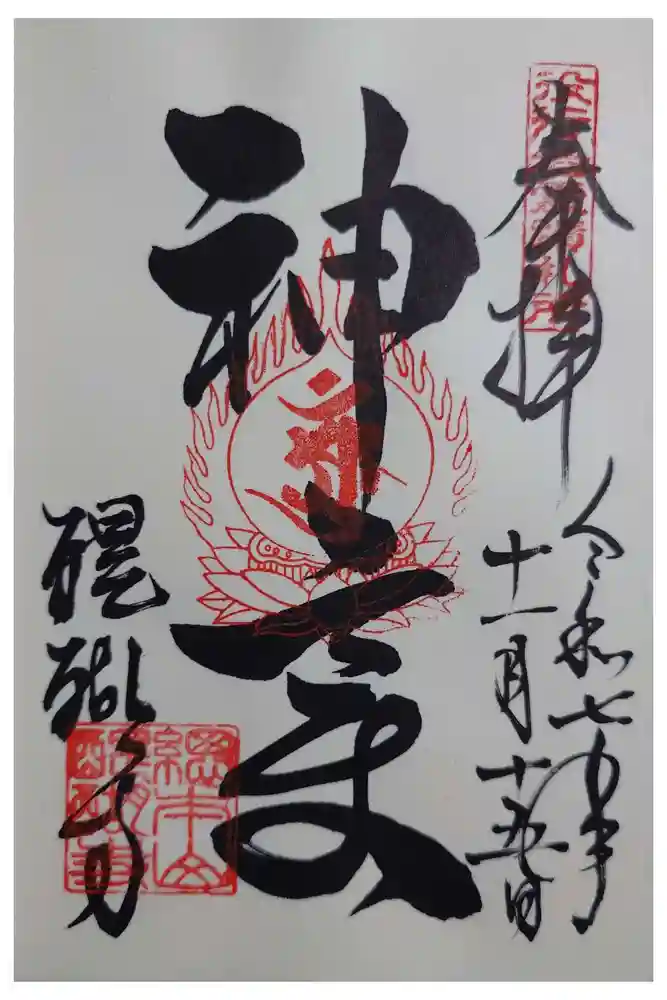 奉拝
令和七年
十一月十五日
神変
醍醐寺